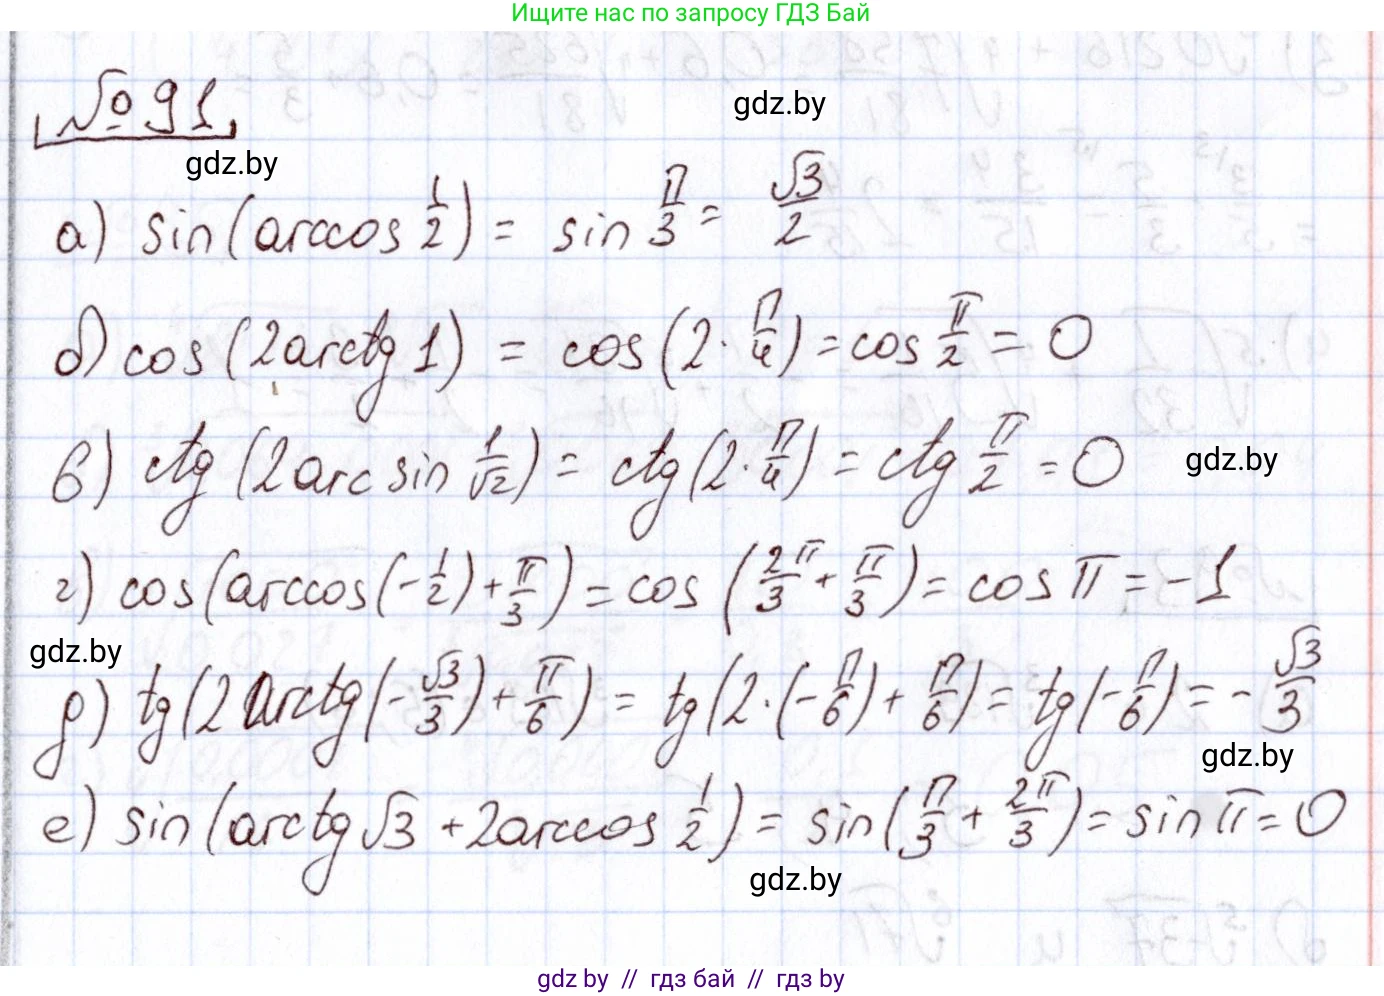 Ищите нас по запросу ГДЗ Бай
№ 91
gdz.by
gdz.by
а) sin(arccos 1/2) = sin π/3 = √3/2
б) cos(2arctg 1) = cos(2·π/4) = cos π/2 = 0
в) ctg(2arcsin 1/√2) = ctg(2·π/4) = ctg π/2 = 0
gdz.by
г) cos(arccos(-1/2) + π/3) = cos(2π/3 + π/3) = cos π = -1
gdz.by
д) tg(2 arctg(-√3/3) + π/6) = tg(2·(-π/6) + π/6) = tg(-π/6) = -√3/3
gdz.by
е) sin(arctg √3 + 2arccos 1/2) = sin(π/3 + 2π/3) = sin π = 0
gdz.by
gdz by // гдз бай // гдз by